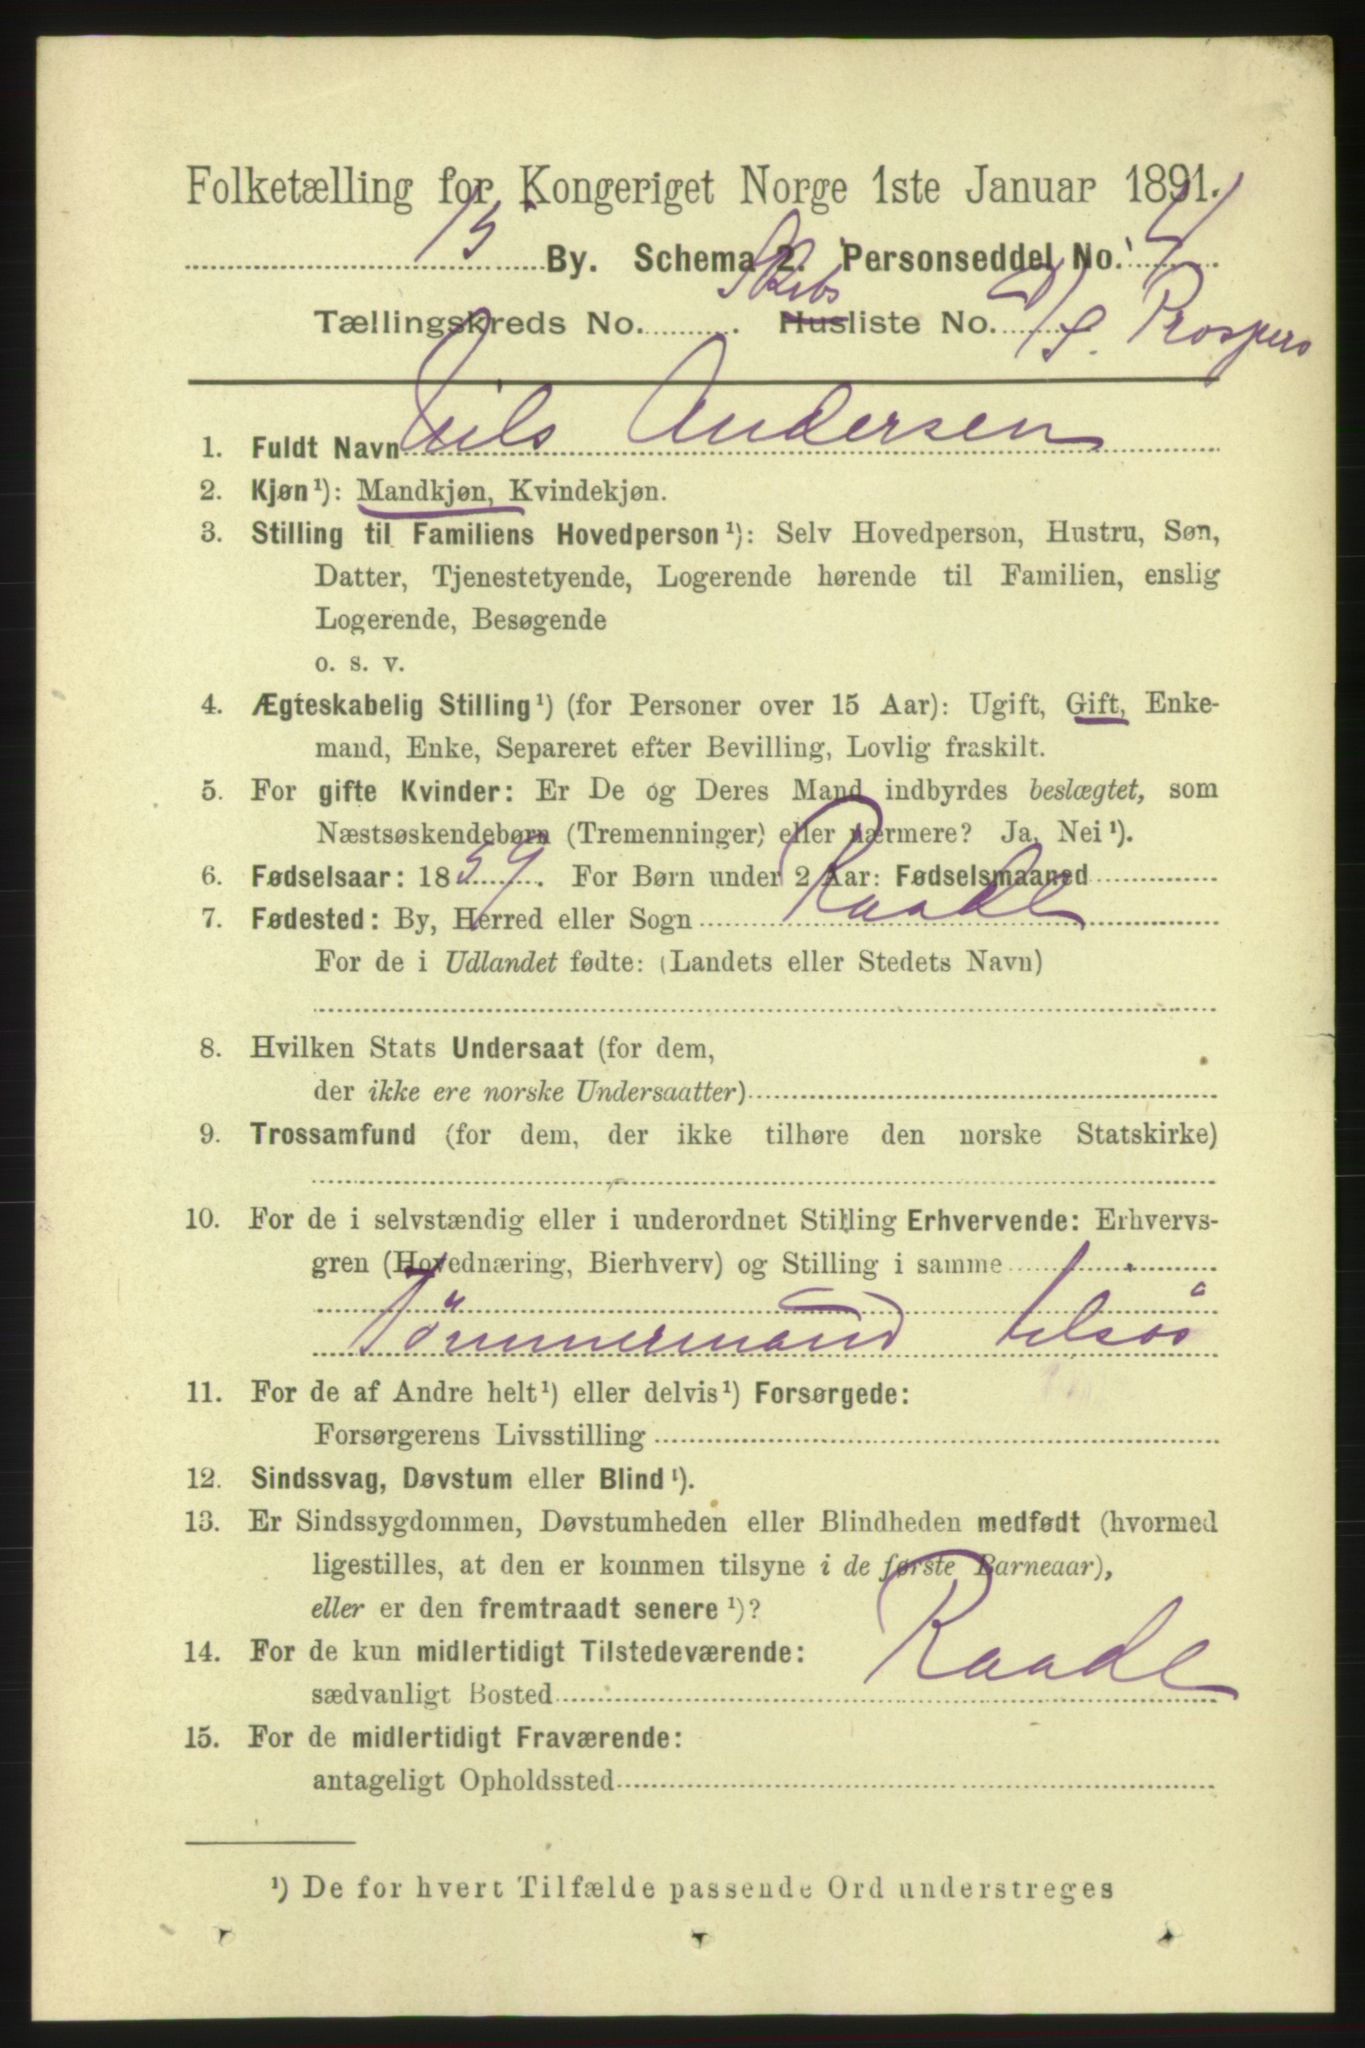 Folketælling for Kongeriget Norge 1ste Januar 1891.
15 By. Schema 2. Personseddel No. 4
Skibs
Tællingskreds No. ........... Husliste No. D/S. Prospero
1. Fuldt Navn Nils Andersen
2. Kjøn¹): Mandkjøn, Kvindekjøn.
3. Stilling til Familiens Hovedperson¹): Selv Hovedperson, Hustru, Søn,
Datter, Tjenestetyende, Logerende hørende til Familien, enslig
Logerende, Besøgende
o. s. v.
4. Ægteskabelig Stilling¹) (for Personer over 15 Aar): Ugift, Gift, Enke-
mand, Enke, Separeret efter Bevilling, Lovlig fraskilt.
5. For gifte Kvinder: Er De og Deres Mand indbyrdes beslægtet, som
Næstsøskendebørn (Tremenninger) eller nærmere? Ja, Nei¹).
6. Fødselsaar: 1859. For Børn under 2 Aar: Fødselsmaaned
7. Fødested: By, Herred eller Sogn Raade
For de i Udlandet fødte: (Landets eller Stedets Navn)
8. Hvilken Stats Undersaat (for dem,
der ikke ere norske Undersaatter)
9. Trossamfund (for dem, der ikke tilhøre den norske Statskirke)
10. For de i selvstændig eller i underordnet Stilling Erhvervende: Erhvervs-
gren (Hovednæring, Bierhverv) og Stilling i samme
Tömmermand tilsøs
11. For de af Andre helt¹) eller delvis¹) Forsørgede:
Forsørgerens Livsstilling
12. Sindssvag, Døvstum eller Blind¹).
13. Er Sindssygdommen, Døvstumheden eller Blindheden medfødt (hvormed
ligestilles, at den er kommen tilsyne i de første Barneaar),
eller er den fremtraadt senere¹)?
14. For de kun midlertidigt Tilstedeværende:
sædvanligt Bosted Raade
15. For de midlertidigt Fraværende:
antageligt Opholdssted
¹) De for hvert Tilfælde passende Ord understreges